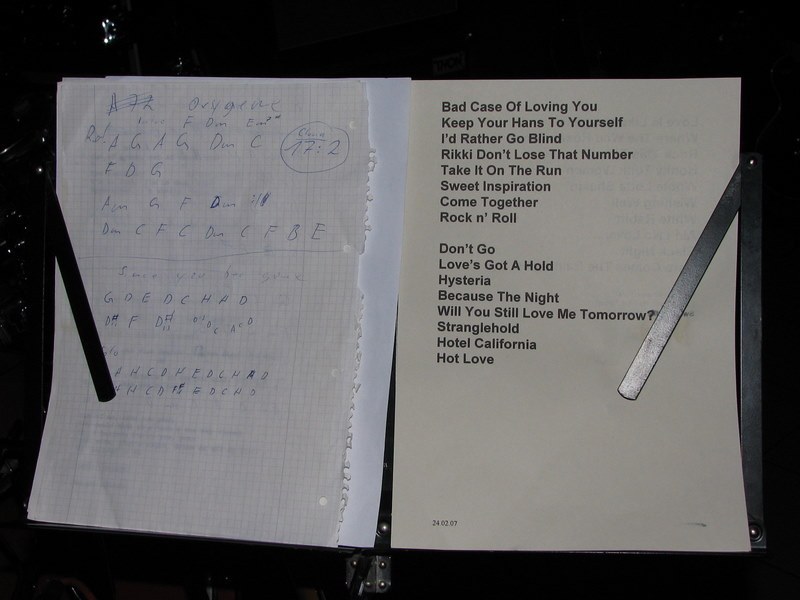 F Dm
A G A G Dm C
17:2
F D G
Am G F Dm
Dm C F C Dm C F B E
Since you been gone
G D E D C H A D
D# F D#
A H C D H E D C H A D
A H C D E D C H D
Bad Case Of Loving You
Keep Your Hans To Yourself
I'd Rather Go Blind
Rikki Don't Lose That Number
Take It On The Run
Sweet Inspiration
Come Together
Rock n' Roll
Don't Go
Love's Got A Hold
Hysteria
Because The Night
Will You Still Love Me Tomorrow?
Stranglehold
Hotel California
Hot Love
24.02.07